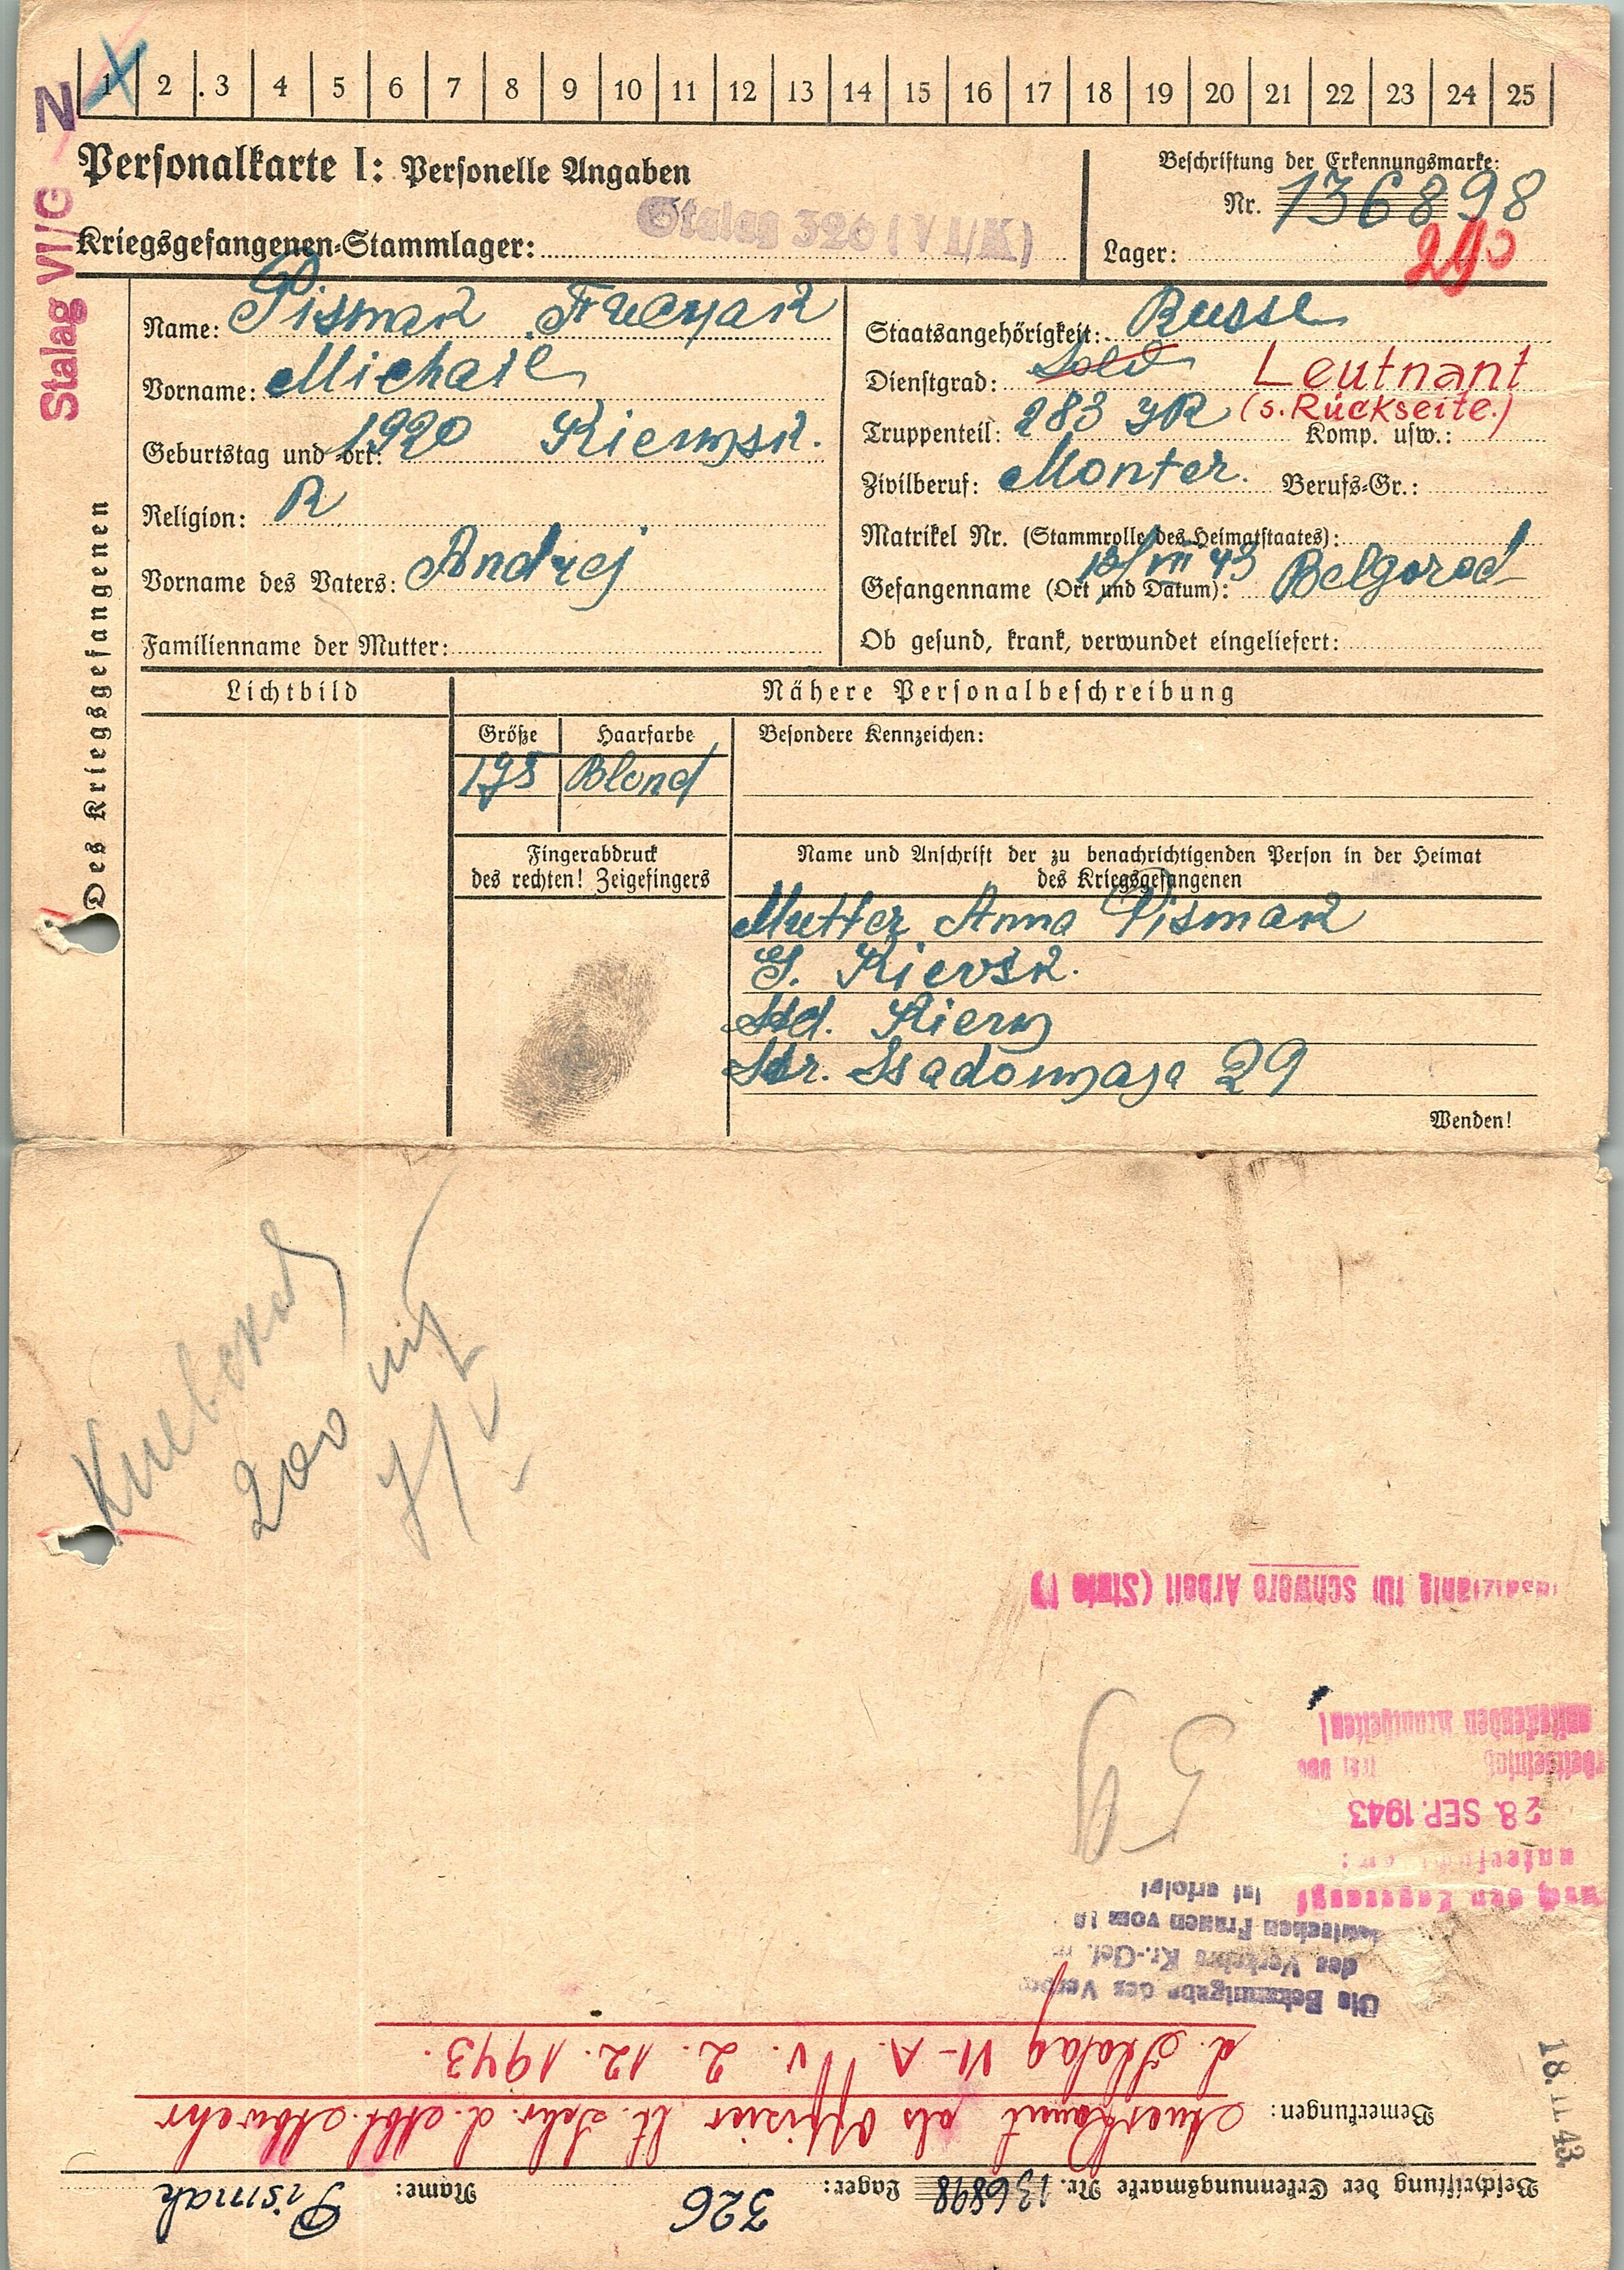 1 2 3 4 5 6 7 8 9 10 11 12 13 14 15 16 17 18 19 20 21 22 23 24 25
N
Stalag VI/G
Personalkarte I: Personelle Angaben
Kriegsgefangenen-Stammlager: Stalag 326 (VI/K)
Beschriftung der Erkennungsmarke:
Nr. 136898
Lager:
Des Kriegsgefangenen
Name: Pismak
Vorname: Michail
Geburtstag und -ort: 1920
Religion: R
Vorname des Vaters: Andrej
Familienname der Mutter:
Staatsangehörigkeit: Russe
Dienstgrad: Sold Leutnant
(s. Rückseite.)
Truppenteil: 283 JR Komp. usw.:
Zivilberuf: Monter. Berufs-Gr.:
Matrikel Nr. (Stammrolle des Heimatstaates):
Gefangenname (Ort und Datum): 13/VII 43 Belgorod
Ob gesund, krank, verwundet eingeliefert:
Lichtbild
Nähere Personalbeschreibung
Größe Haarfarbe Besondere Kennzeichen:
175 Blond
Fingerabdruck
des rechten! Zeigefingers
Name und Anschrift der zu benachrichtigenden Person in der Heimat
des Kriegsgefangenen
Mutter Anna Pismak
G. Kievsk.
Std. Kiew
Str. Ssadowaja 29
Wenden!
200
Beschriftung der Erkennungsmarke Nr. 136898 Lager: 326 Name: Pismak
Bemerkungen: Anerkannt als Offizier lt. Schr. d. Abt. Abwehr
d. Stalag VI-A. v. 2. 12. 1943.
18. 11. 43.
Die Bekanntgabe des
des Verkehrs Kr.-Gef.
deutschen Frauen vom
ist erfolgt
28. SEP. 1943
ansteckenden Krankheiten!
für schwere Arbeit (Stufe